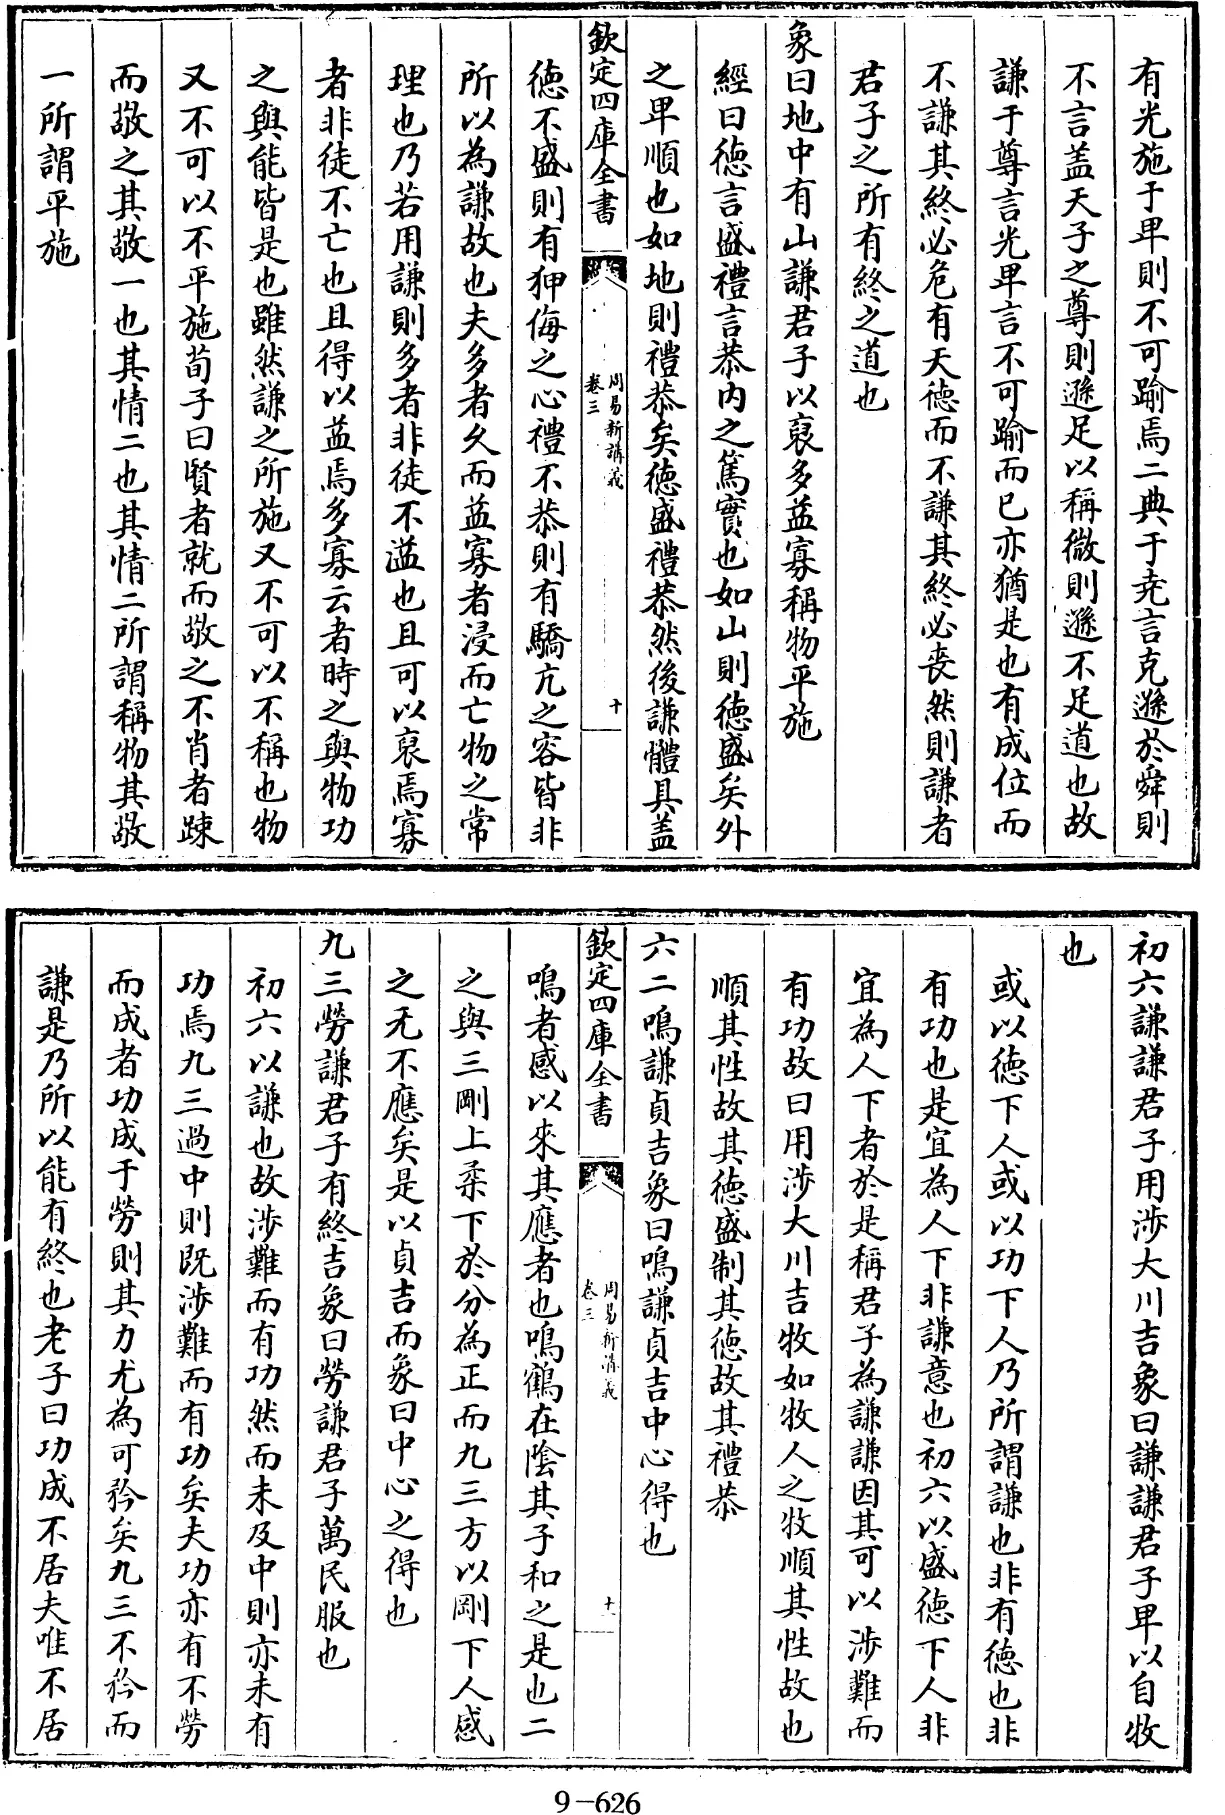 有光施于卑則不可踰焉二典于堯言克遜於舜則
不言盖天子之尊則遜足以稱微則遜不足道也故
謙于尊言光卑言不可踰而已亦猶是也有成位而
不謙其終必危有天德而不謙其終必喪然則謙者
君子之所有終之道也
象曰地中有山謙君子以裒多益寡稱物平施
經曰德言盛禮言恭内之篤實也如山則德盛矣外
之卑順也如地則禮恭矣德盛禮恭然後謙體具盖
欽定四庫全書
周易新講義
卷三
十
德不盛則有狎侮之心禮不恭則有驕亢之容皆非
所以為謙故也夫多者久而益寡者浸而亡物之常
理也乃若用謙則多者非徒不溢也且可以裒焉寡
者非徒不亡也且得以益焉多寡云者時之與物功
之與能皆是也雖然謙之所施又不可以不稱也物
又不可以不平施荀子曰賢者就而敬之不肖者踈
而敬之其敬一也其情二也其情二所謂稱物其敬
一所謂平施
初六謙謙君子用涉大川吉象曰謙謙君子卑以自牧
也
或以德下人或以功下人乃所謂謙也非有德也非
有功也是宜為人下非謙意也初六以盛德下人非
宜為人下者於是稱君子為謙謙因其可以涉難而
有功故曰用涉大川吉牧如牧人之牧順其性故也
順其性故其德盛制其德故其禮恭
六二鳴謙貞吉象曰鳴謙貞吉中心得也
欽定四庫全書
周易新講義
卷三
十一
鳴者感以來其應者也鳴鶴在陰其子和之是也二
之與三剛上柔下於分為正而九三方以剛下人感
之无不應矣是以貞吉而象曰中心之得也
九三勞謙君子有終吉象曰勞謙君子萬民服也
初六以謙也故涉難而有功然而未及中則亦未有
功焉九三過中則既涉難而有功矣夫功亦有不勞
而成者功成于勞則其力尤為可矜矣九三不矜而
謙是乃所以能有終也老子曰功成不居夫唯不居
9-626